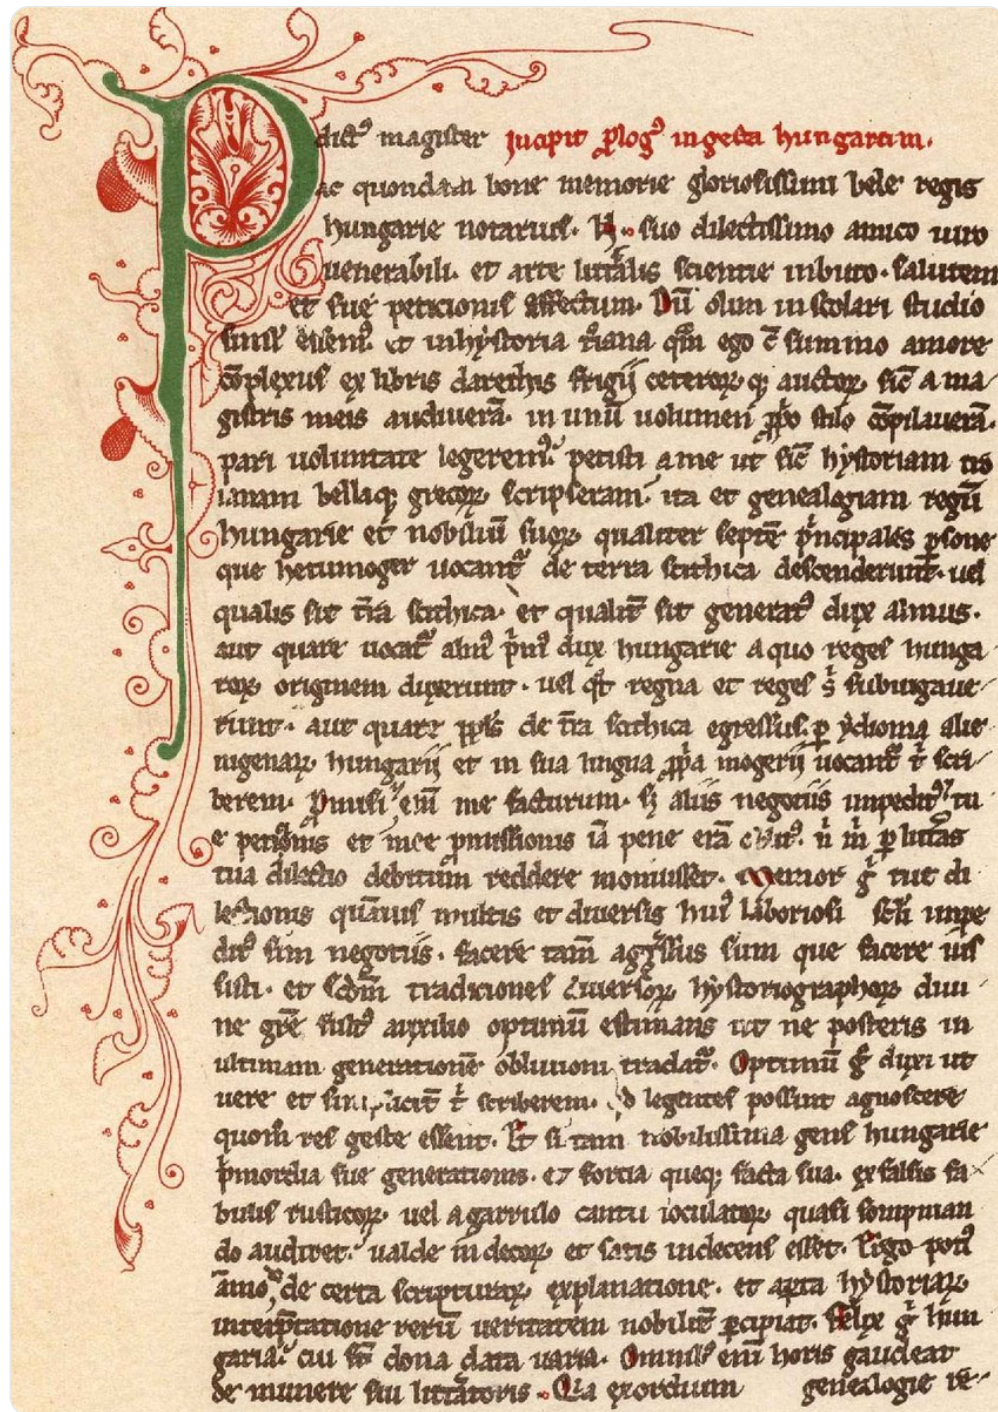 P dictus magister Incipit prologus in gesta hungarum.
ac quondam bone memorie gloriosissimi bele regis
hungarie notarius. N. suo dilectissimo amico uiro
uenerabili. et arte litt̄alis scientie inbuto. salutem
et sue peticionis effectum. Dū olim in scolari studio
simul essemꝰ. et in hystoria t̄iana qm̄ ego cū summo amore
cōplexus ex libris darethis frigij ceteroꝝ qꝫ auctoꝝ. sic̄ a ma
gistris meis audiuerā. in unū uolumen ꝓprio stilo cōpilauerā.
pari uoluntate legeremꝰ. petisti a me ut sic̄ hystoriam tro
ianam bellaqꝫ grecoꝝ scripseram. ita et genealogiam regū
hungarie et nobiliū suoꝝ. qualiter septē pͥncipales ꝑsone
que hetumoger uocant᷑ de terra scithica descenderunt. uel
qualis sit t̄ra scithica. et qualit̄ sit generatꝰ dux almus.
aut quare uocat᷑ almꝰ pͥmꝰ dux hungarie a quo reges hunga
roꝝ originem duxerunt. uel qͦt regna et reges sͥ subiugaue
runt. aut quare ppl̄s de t̄ra scithica egressus. ꝑ ydioma alie
nigenaꝝ hungarij et in sua lingua ꝓpͥa mogerij uocant᷑ tͥ scri
berem. Promisi eni me facturum. sꝫ aliis negotiis impeditꝰ tu
e peticionis et mee ꝓmissionis iā pene erā oblitꝰ. nͥ mͥ ꝑ litt̄as
tua dilectio debitum reddere monuisset. Memor gͥ tue di
lectionis quāuis multis et diuersis huiꝰ laboriosi sc̄li impe
ditꝰ sim negotiis. facere tam̄ aggressus sum que facere ius
sisti. et sc̄dm tradiciones diuersoꝝ hystoriographoꝝ diui
ne gr̄e fultꝰ auxilio optimū estimans ut ne posteris in
ultimam generationē obliuioni tradat᷑. Optimū gͦ duxi ut
uere et simplicit̄ tͥ scriberem. qd legentes possint agnoscere
quom̄ res geste essent. Et si tam nobilissima gens hungarie
pͥmordia sue generationis. et fortia queqꝫ facta sua. ex falsis fa
bulis rusticoꝝ. uel a garrulo cantu ioculatoꝝ quasi sompnian
do audiret. ualde indecoꝝ et satis indecens esset. Ergo potiꝰ
āmoͦ de certa scripturaꝝ explanatione. et aꝑta hystoriaꝝ
interp̄tatione rerū ueritatem nobilit̄ ꝑcipiat. Felix gͥ hun
garia. cui sūt dona data uaria. Omnibꝰ eni horis gaudeat
de munere sui litt̄atoris. Quia exordium genealogie re